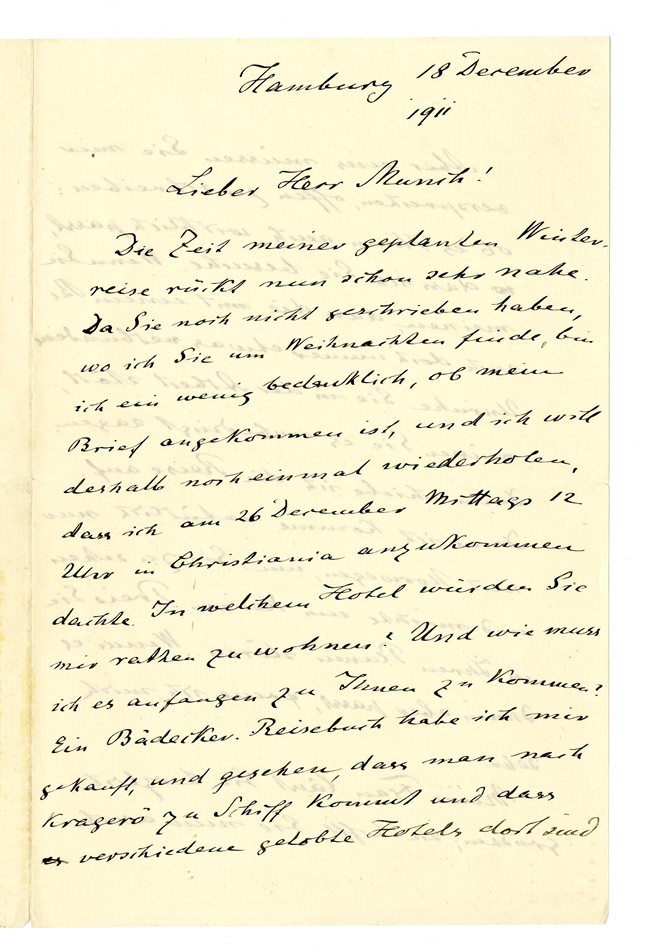 Hamburg 18 December
1911
Lieber Herr Munch!
Die Zeit meiner geplanten Winter-
reise rückt nun schon sehr nahe.
Da Sie noch nicht geschrieben haben,
wo ich Sie um Weihnachten finde, bin
ich ein wenig bedenklich, ob mein
Brief angekommen ist, und ich will
deshalb noch einmal wiederholen,
dass ich am 26 December Mittags 12
Uhr in Christiania anzukommen
dachte. In welchem Hotel würden Sie
mir rathen zu wohnen? Und wie muss
ich es anfangen zu Ihnen zu kommen?
Ein Bädecker-Reisebuch habe ich mir
gekauft, und gesehen, dass man nach
Kragerö zu Schiff kommt und dass
verschiedene gelobte Hotels dort sind